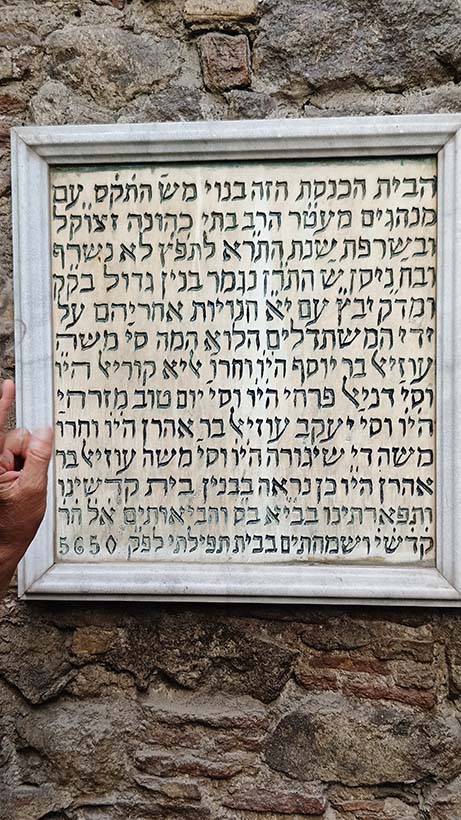 הבית הכנסת הזה בנוי מש׳ התק״ס עם
מנהגים מעט״ר הרב בתי כהונה זצוקל
ובשרפת שנת התר״א לתפ״ץ לא נשרף
ובח׳ ניסן ש׳ התר״ן נגמר בנין גדול בקק
ומדק יבץ עם י״א חנויות אחריהם על
ידי המשתדלים הלוא המה סי׳ משה
עוזיאל בר יוסף הי״ו וחרו׳ ליא קוריאל הי״ו
וסי׳ דניאל פרחי הי״ו וסי׳ יום טוב מזרחי
הי״ו וסי׳ יעקב עוזיאל בר אהרן הי״ו וחרו׳
משה די שיגורה הי״ו וסי׳ משה עוזיאל בר
אהרן הי״ו כן נראה בבנין בית קדשינו
ותפארתינו בביא בס והביאותים אל הר
קדשי ושמחתים בבית תפילתי לפק 5650